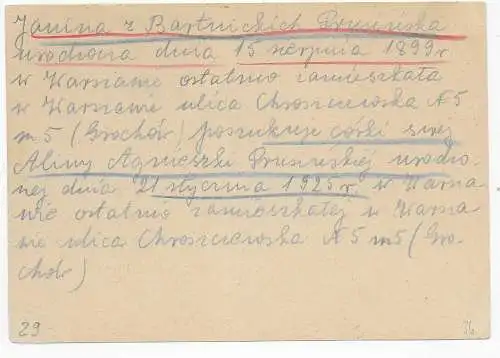 Janina z Bartnickich Prusińska
urodzona dnia 15 sierpnia 1899 r
w Warszawie ostatnio zamieszkała
w Warszawie ulica Chroszczewska № 5
m 5 (Grochów) poszukuje córki swej
Aliny Agnieszki Prusińskiej urodzo-
nej dnia 21 stycznia 1925 r. w Warsza
wie ostatnio zamieszkałej w Warsza
wie ulica Chroszczewska № 5 m 5 (Gro-
chów)
29